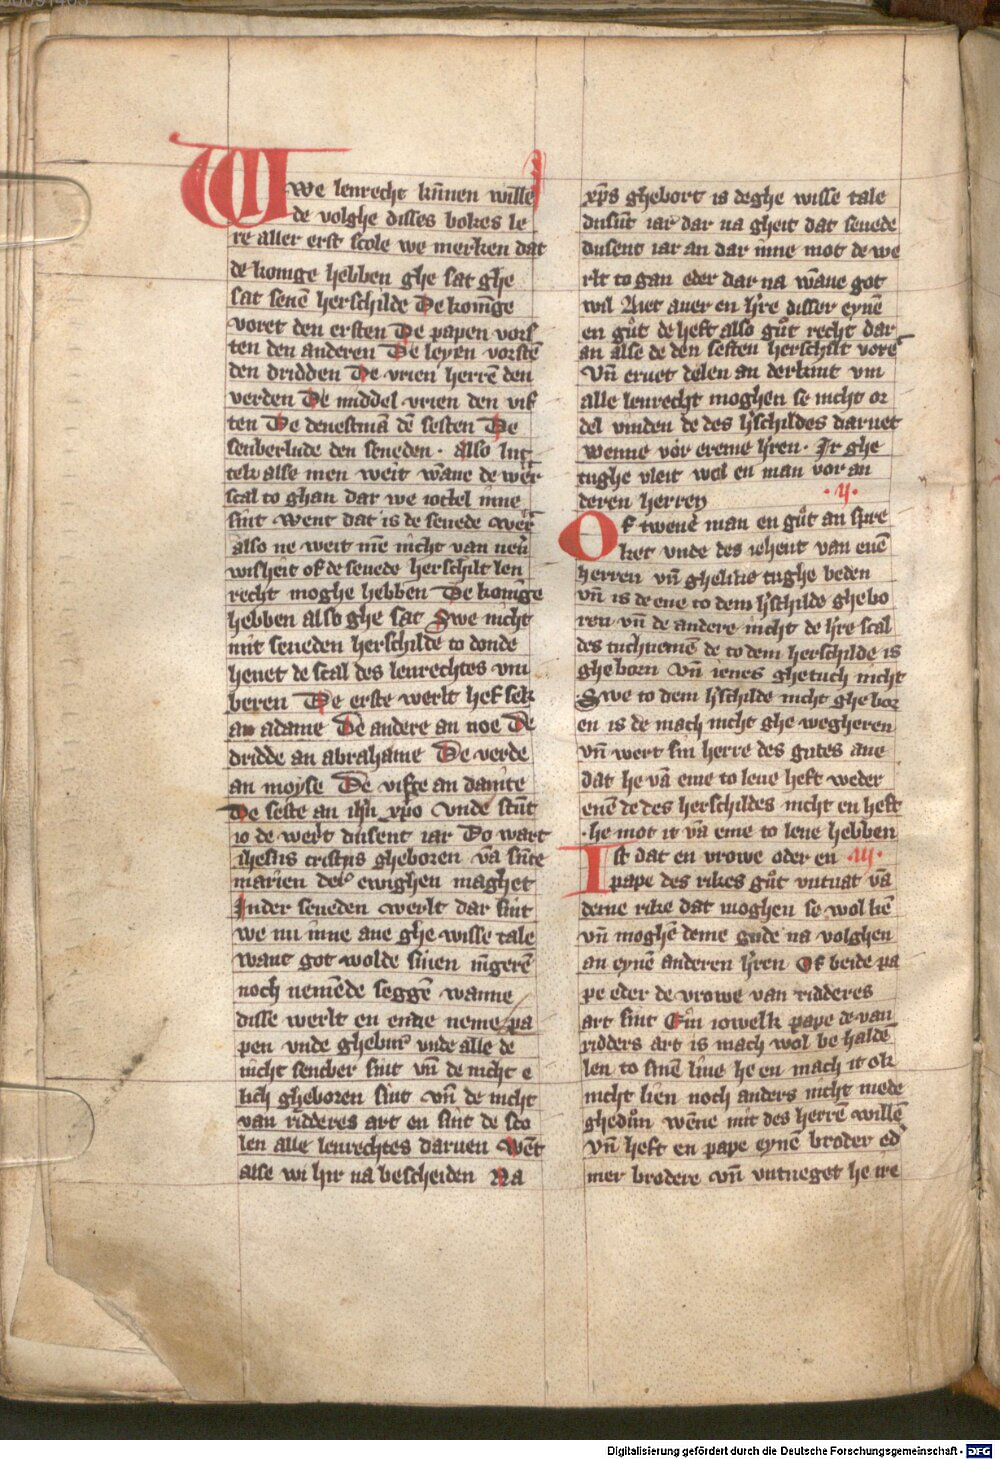 Swe lenrecht kūnen wille
de volghe disses bokes le
re aller erst scole we merken dat
de konīge hebben ghe sat ghe
sat seuē herschilde De konīge
voret den ersten De papen vors
ten den anderen De leyen vorstē
den dridden De vrien herrē den
verden De middel vrien den vif
ten De denestmā dē sesten De
senberlude den seueden · also lut
tek alse men weit wāne de wer
scal to ghan dar we iottel inne
sint went dat is de seuede werl
also ne weit mē nicht van neū
wisheit of de seuede herschilt len
recht moghe hebben De konīge
hebben also ghe sat Swe nicht
mit seueden herschilde to donde
heuet de scal des lenrechtes vm
beren De erste werlt hef sek
an adame De andere an noe De
dridde an abrahame De verde
an moyse De vifte an dauite
De seste an ihū xp̄o vnde stūt
io de werlt dusent iar Do wart
ihesus cristus gheboren vā sūte
marien der ewighen maghet
Inder seueden werlt dar sint
we nu inne ane ghe wisse tale
want got wolde sinen iūgerē
noch nemēde seggē wanne
disse werlt en ende neme pa
pen vnde ghebur vnde alle de
nicht sentber sint vn̄ de nicht e
lich gheboren sint vn̄ de nicht
van ridderes art en sint de sco
len alle lenrechtes daruen wēt
alse wi hir na bescheiden Na
xp̄s ghebort is deghe wisse tale
dusūt iar dar na gheit dat seuede
dusent iar an dar inne mot de we
rlt to gan eder dar na wāne got
wil Aiet auer en h're disser eynē
en gůt de heft also gůt recht dar
an alse de den sesten herschilt vore
Vn̄ eruet delen an derkint vm
alle lenrecht moghen se nicht or
del vinden de des h'schildes daruet
wenne vor ereme h'ren · Ir ghe
tughe vleit wol en man vor an
deren herren
·ij·
Of twene man en gůt an spre
ket vnde des iehent van enē
herren vn̄ ghelike tughe beden
vn̄ is de ene to dem h'schilde ghebo
ren vn̄ de andere nicht de h're scal
des tuch nemē de to dem herschilde is
gheborn vn̄ ienes ghetuch nicht
Swe to dem h'schilde nicht ghe bor
en is de mach nicht ghe wegheren
vn̄ wert sin herre des gutes ane
dat he vā eme to lene heft weder
enē de des herschildes nicht en heft
he mot it vā eme to lene hebben
Ist dat en vrowe oder en ·iij·
pape des rikes gůt vntuat vā
deme rike dat moghen se wol liē
vn̄ moghē deme gude na volghen
an eynē anderen h'ren Of beide pa
pe eder de vrowe van ridderes
art sint Ein iowelk pape de van
ridders art is mach wol be haldē
len to sinē liue he en mach it ok
nicht lien noch anders nicht mede
ghedůn wēne mit des herrē willē
vn̄ heft en pape eynē broder ed'
mer brodere vn̄ vntueget he ire
Digitalisierung gefördert durch die Deutsche Forschungsgemeinschaft - DFG